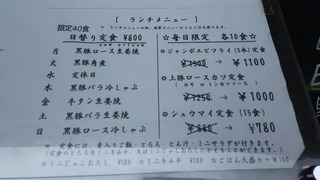 【 ランチメニュー 】
限定40食
日替り定食 ¥800
月 黒豚ロース生姜焼
火 黒豚角煮
水 定休日
木 黒豚バラ冷しゃぶ
金 牛タン生姜焼
土 黒豚バラ生姜焼
日 黒豚ロース冷しゃぶ
☆毎日限定 各10食☆
・ジャンボエビフライ(2本)定食
→ ¥1100
・上豚ロースカツ定食
¥1250 → ¥1000
・シュウマイ定食 (15食)
¥880 → ¥780
※ 定食には、麦入りご飯・とろろ・とん汁・ミニサラダが付きます。
☆ミニじゃこおろし ¥100 ☆ミニキムチ ¥100 ☆ごはん大盛り